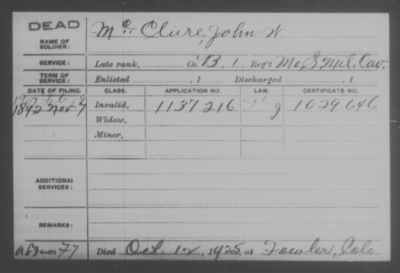 DEAD
NAME OF SOLDIER: Mc Clure, John W.
SERVICE: Late rank, Co. B, 1 Reg't Mo S Mil. Cav.
TERM OF SERVICE: Enlisted , 1 Discharged , 1
DATE OF FILING. CLASS. APPLICATION NO. LAW. CERTIFICATE NO.
1892 Nov 7 Invalid, 1137216 g 1029646
Widow,
Minor,
ADDITIONAL SERVICES:
REMARKS:
77 Died Oct. 12, 1925, at Fowler, Colo